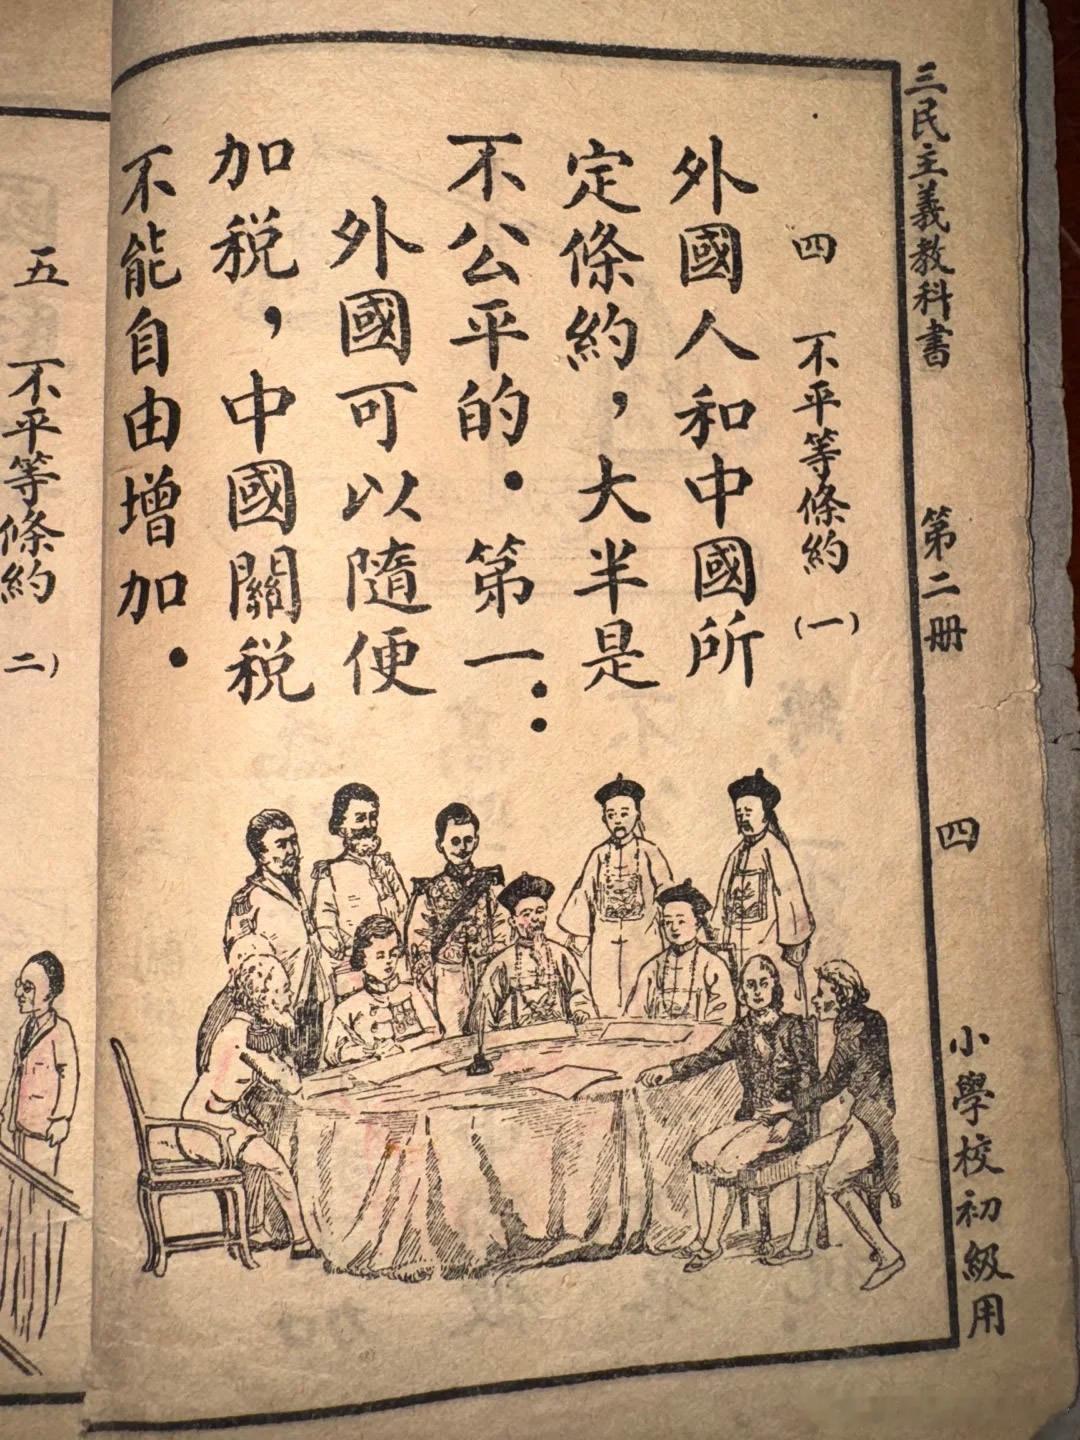 三民主義教科書 第二册 四 小學校初級用
四 不平等條約 (一)
外國人和中國所
定條約，大半是
不公平的．第一：
外國可以隨便
加税，中國關税
不能自由增加．
五 不平等條約 二)